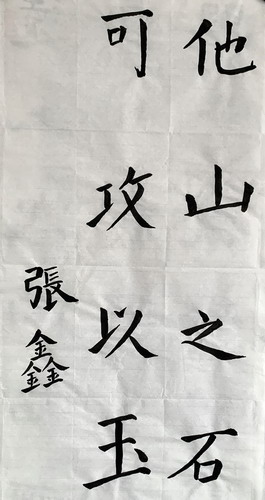 他山之石
可攻以玉
張鑫